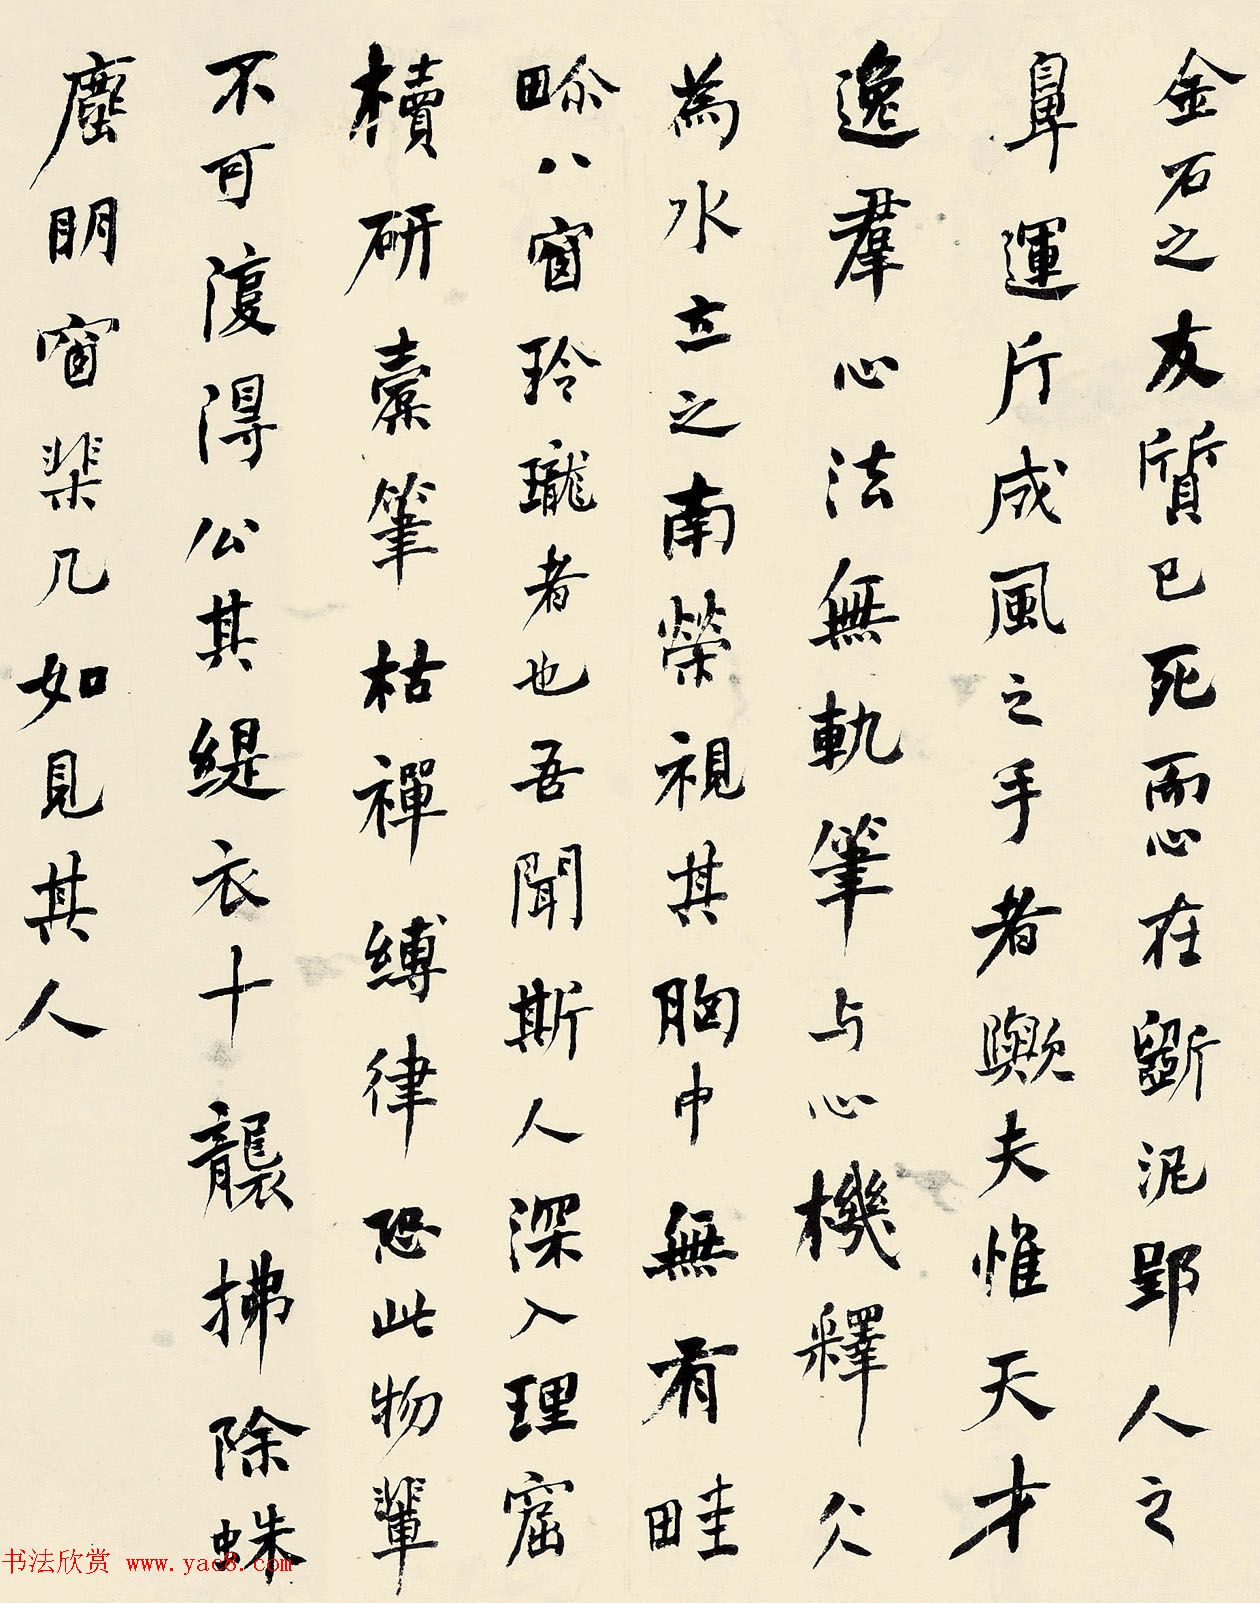 金石之友質已死而心在斵泥郢人之
鼻運斤成風之手者歟夫惟天才
逸羣心法無軌筆与心機釋久
為水立之南榮視其胸中無有畦
畛八窗玲瓏者也吾聞斯人深入理窟
櫝研囊筆枯禪縛律恐此物輩
不可復得公其緹衣十襲拂除蛛
塵明窗棐几如見其人
书法欣赏 www.yac8.com